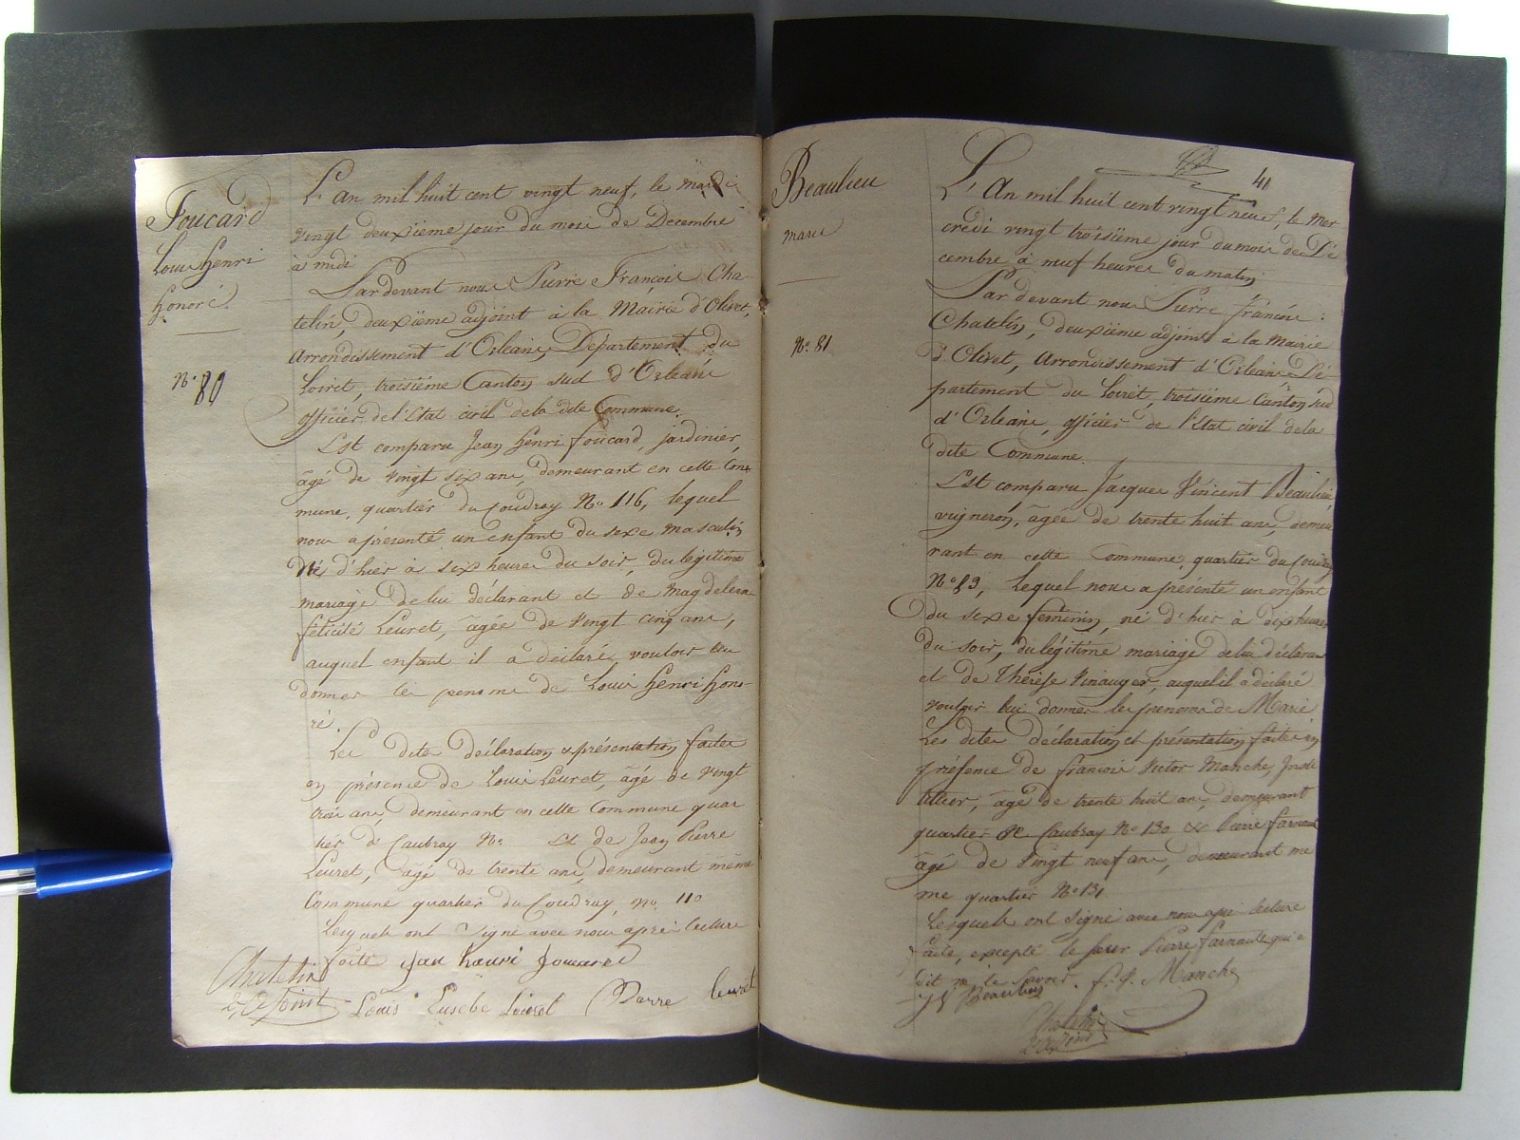 Foucard
Louis henri
honoré
N° 80
L'An mil huit cent vingt neuf, le mardi
vingt deuxième jour du mois de Decembre
à midi
Pardevant nous Pierre François Cha
telin, deuxième adjoint à la Mairie d'Olivet,
Arrondissement d'Orleans, Departement du
Loiret, troisième Canton sud d'Orleans
officier de l'Etat civil de la dite Commune.
Est comparu Jean henri foucard, jardinier,
âgé de vingt six ans, demeurant en cette Com
mune, quartier du Coudray N° 116, lequel
nous a présenté un enfant du sexe masculin
né d'hier à six heures du soir, du légitime
mariage de lui déclarant et de Magdeleine
félicité Leuret, âgée de vingt cinq ans,
auquel enfant il a déclaré vouloir lui
donner les prenoms de Louis henri hono-
ré.
Les dite déclaration & présentation faites
en présence de Louis Leuret, âgé de vingt
trois ans, demeurant en cette Commune quar
tier de Caubray N° Et de Jean Pierre
Leuret, âgé de trente ans, demeurant même
Commune quartier du Coudray, N° 110
Lesquels ont signé avec nous après lecture
faite Jan hanri foucard
Chatelin
2e Adjoint Louis Eusebe Leuret Pierre leuret
Beaulieu
marie
N° 81
41
L'An mil huit cent vingt neuf, le Mer
credi vingt troisième jour du mois de Dé
cembre à neuf heures du matin,
Pardevant nous Pierre françois
Chatelin, deuxième adjoint à la Mairie
d'Olivet, Arrondissement d'Orleans Dé
partement du Loiret, troisième Canton sud
d'Orleans, officier de l'Etat civil de la
dite Commune.
Est comparu Jacques Vincent Beaulieu
vigneron, âgée de trente huit ans, demeu
rant en cette Commune, quartier du Coudray
N° 89, Lequel nous a présenté un enfant
du sexe feminin, né d'hier à dix heures
du soir, du légitime mariage de lui déclarant
et de Thérèse Pinauger, auquel il a déclaré
vouloir lui donner les prenoms de Marie
Les dites déclaration et présentation faites en
présence de françois Victor Manche, Insti
tuteur, âgé de trente huit ans demeurant
quartier de Caubray N° 130 & Pierre farnault
âgé de vingt neuf ans, demeurant me
me quartier N° 131
Lesquels ont signé avec nous après lecture
faite, excepté le sieur Pierre farnault qui a
dit ne le savoir. f. V. Manche
J V Beaulieu
Chatelin
2e Adjoint